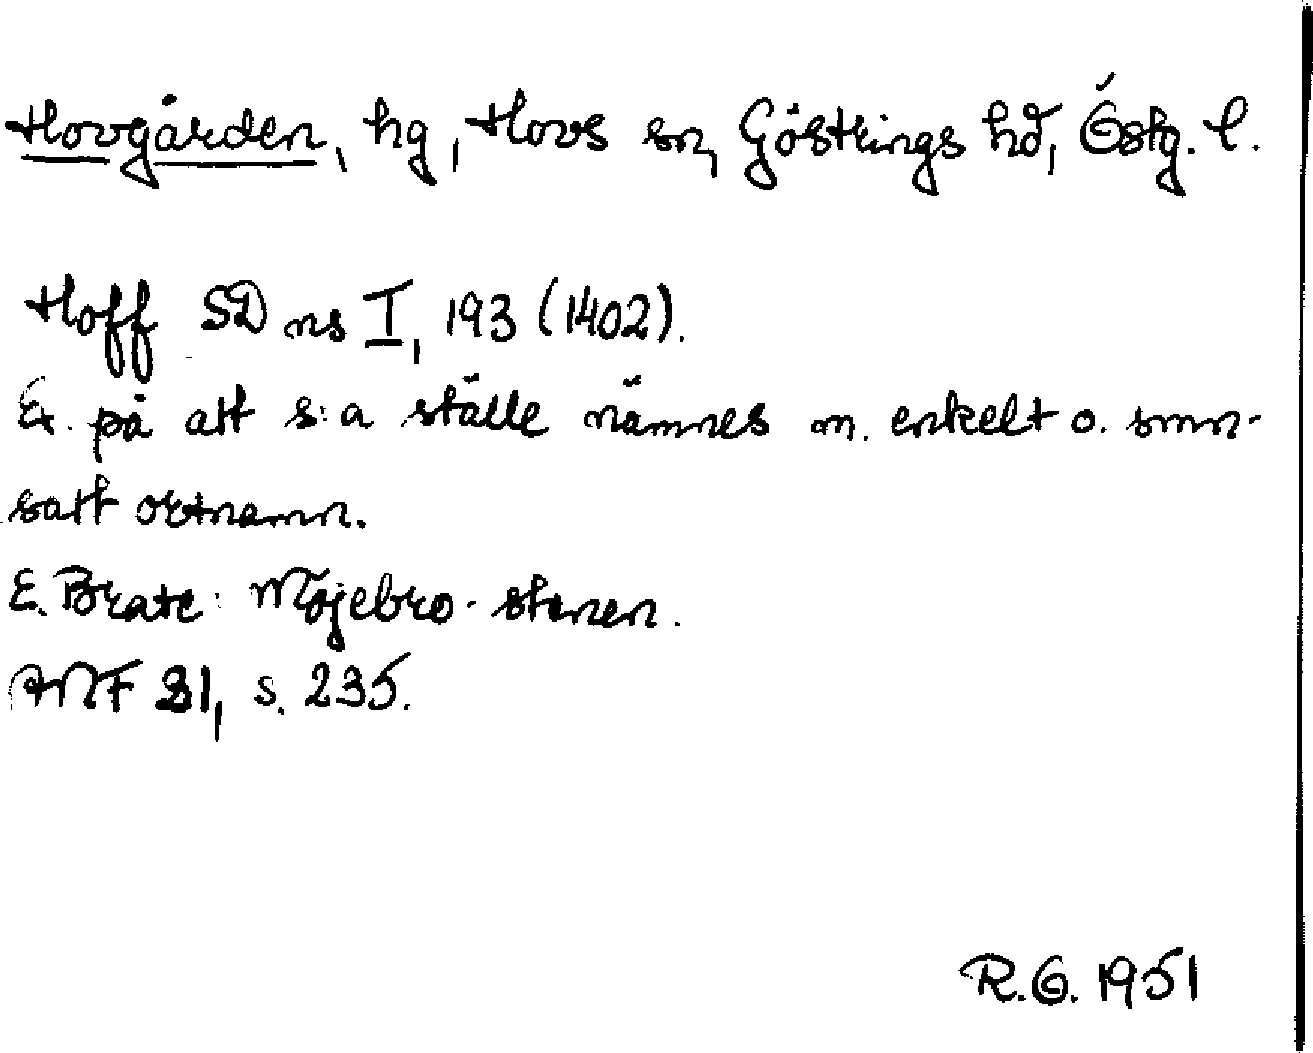 Hovgården, hg, Hovs sn, Göstrings hd, Östg. l.
Hoff SD ns I, 193 (1402).
Ex. på att s:a ställe nämnes m. enkelt o. smn-
satt ortnamn.
E. Brate: Möjebro-stenen.
ANF 31, s. 235.
R.G. 1951